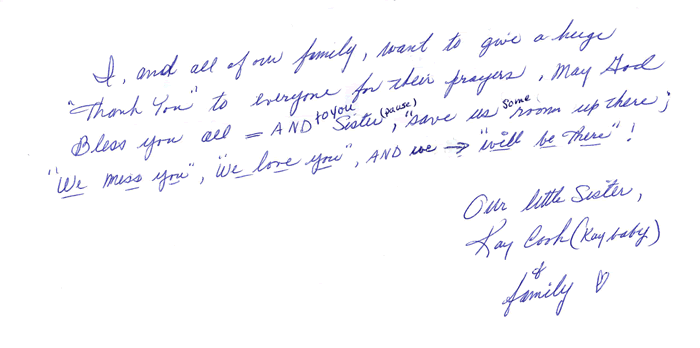 I, and all of our family, want to give a huge
"Thank You" to everyone for their prayers, May God
Bless you all = AND to you Sister (pause), "save us some room up there;
"We miss you", "We love you", AND we → "will be there"!
Our little Sister,
Kay Cook (Kay baby)
&
family ♡